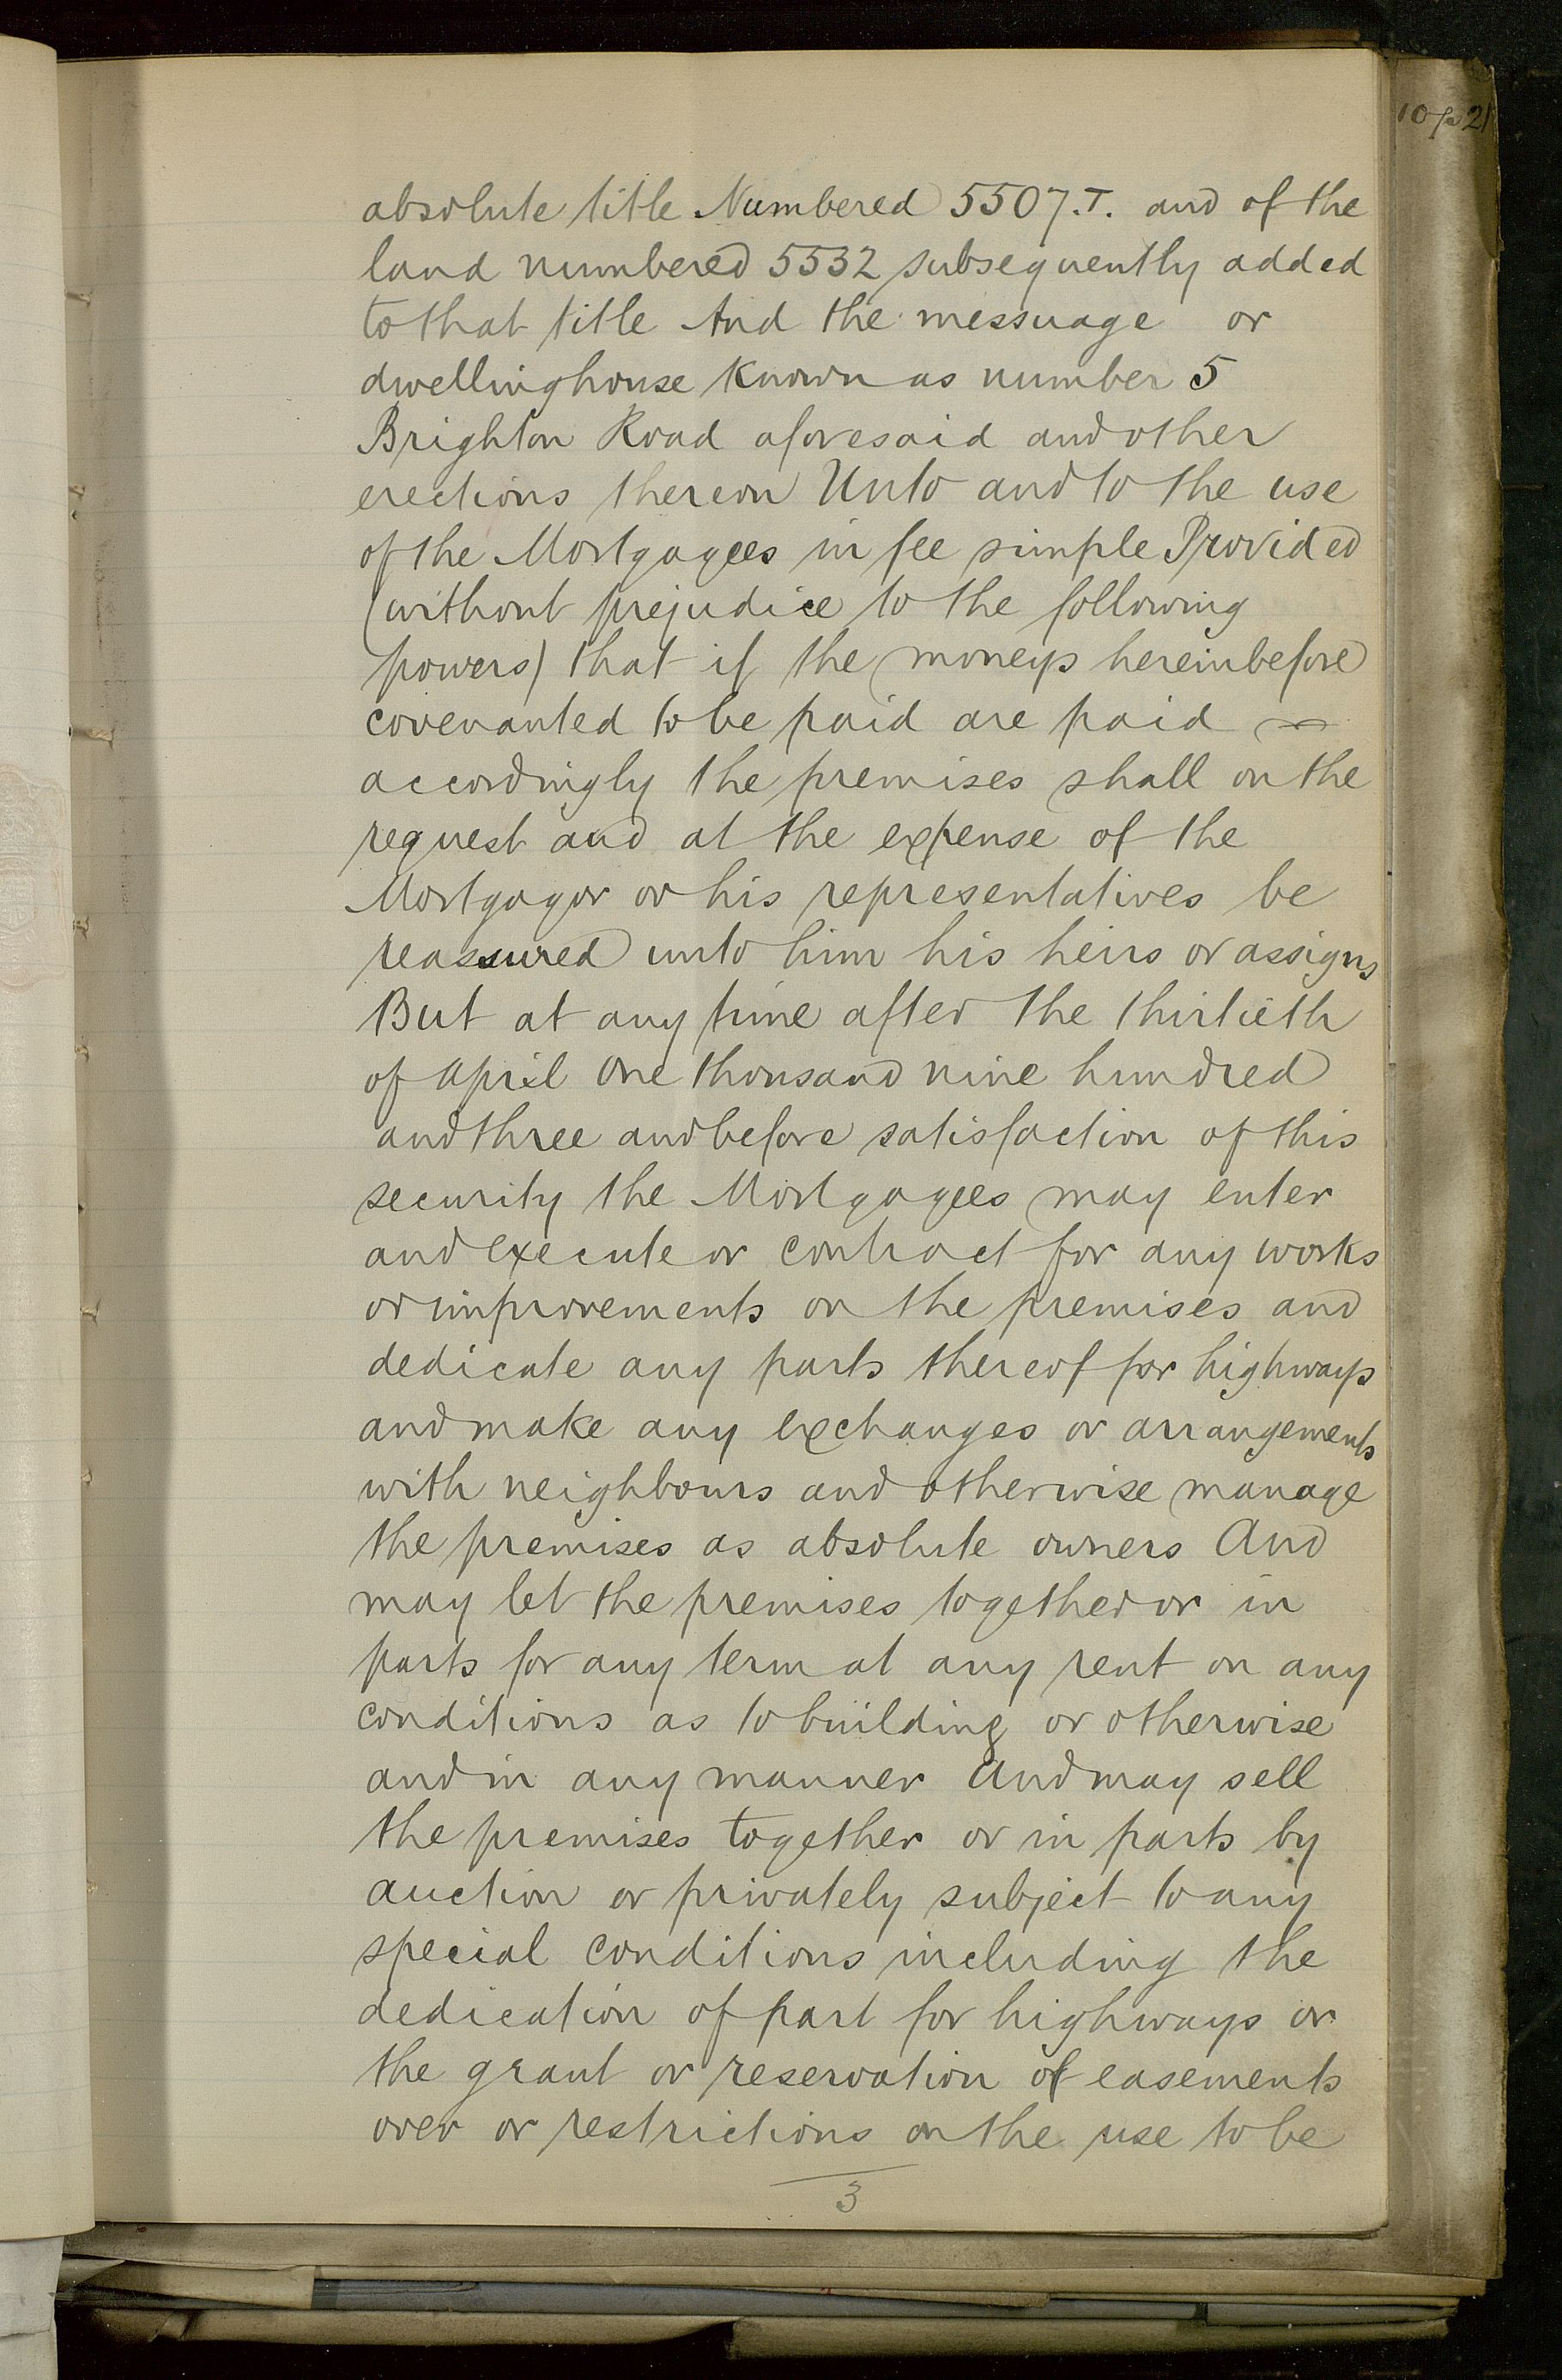 absolute title Numbered 5507.T. and of the
land numbered 5532 subsequently added
to that title And the messuage or
dwellinghouse known as number 5
Brighton Road aforesaid and other
erections thereon Unto and to the use
of the Mortgagees in fee simple Provided
(without prejudice to the following
powers) that if the moneys hereinbefore
covenanted to be paid are paid
accordingly the premises shall on the
request and at the expense of the
Mortgagor or his representatives be
reassured unto him his heirs or assigns
But at any time after the thirtieth
of april one thousand nine hundred
and three and before satisfaction of this
security the Mortgagees may enter
and execute or contract for any works
or improvements on the premises and
dedicate any parts thereof for highways
and make any exchanges or arrangements
with neighbours and otherwise manage
the premises as absolute owners And
may let the premises together or in
parts for any term at any rent on any
conditions as to building or otherwise
and in any manner And may sell
the premises together or in parts by
auction or privately subject to any
special conditions including the
dedication of part for highways or
the grant or reservation of easements
over or restrictions on the use to be
3